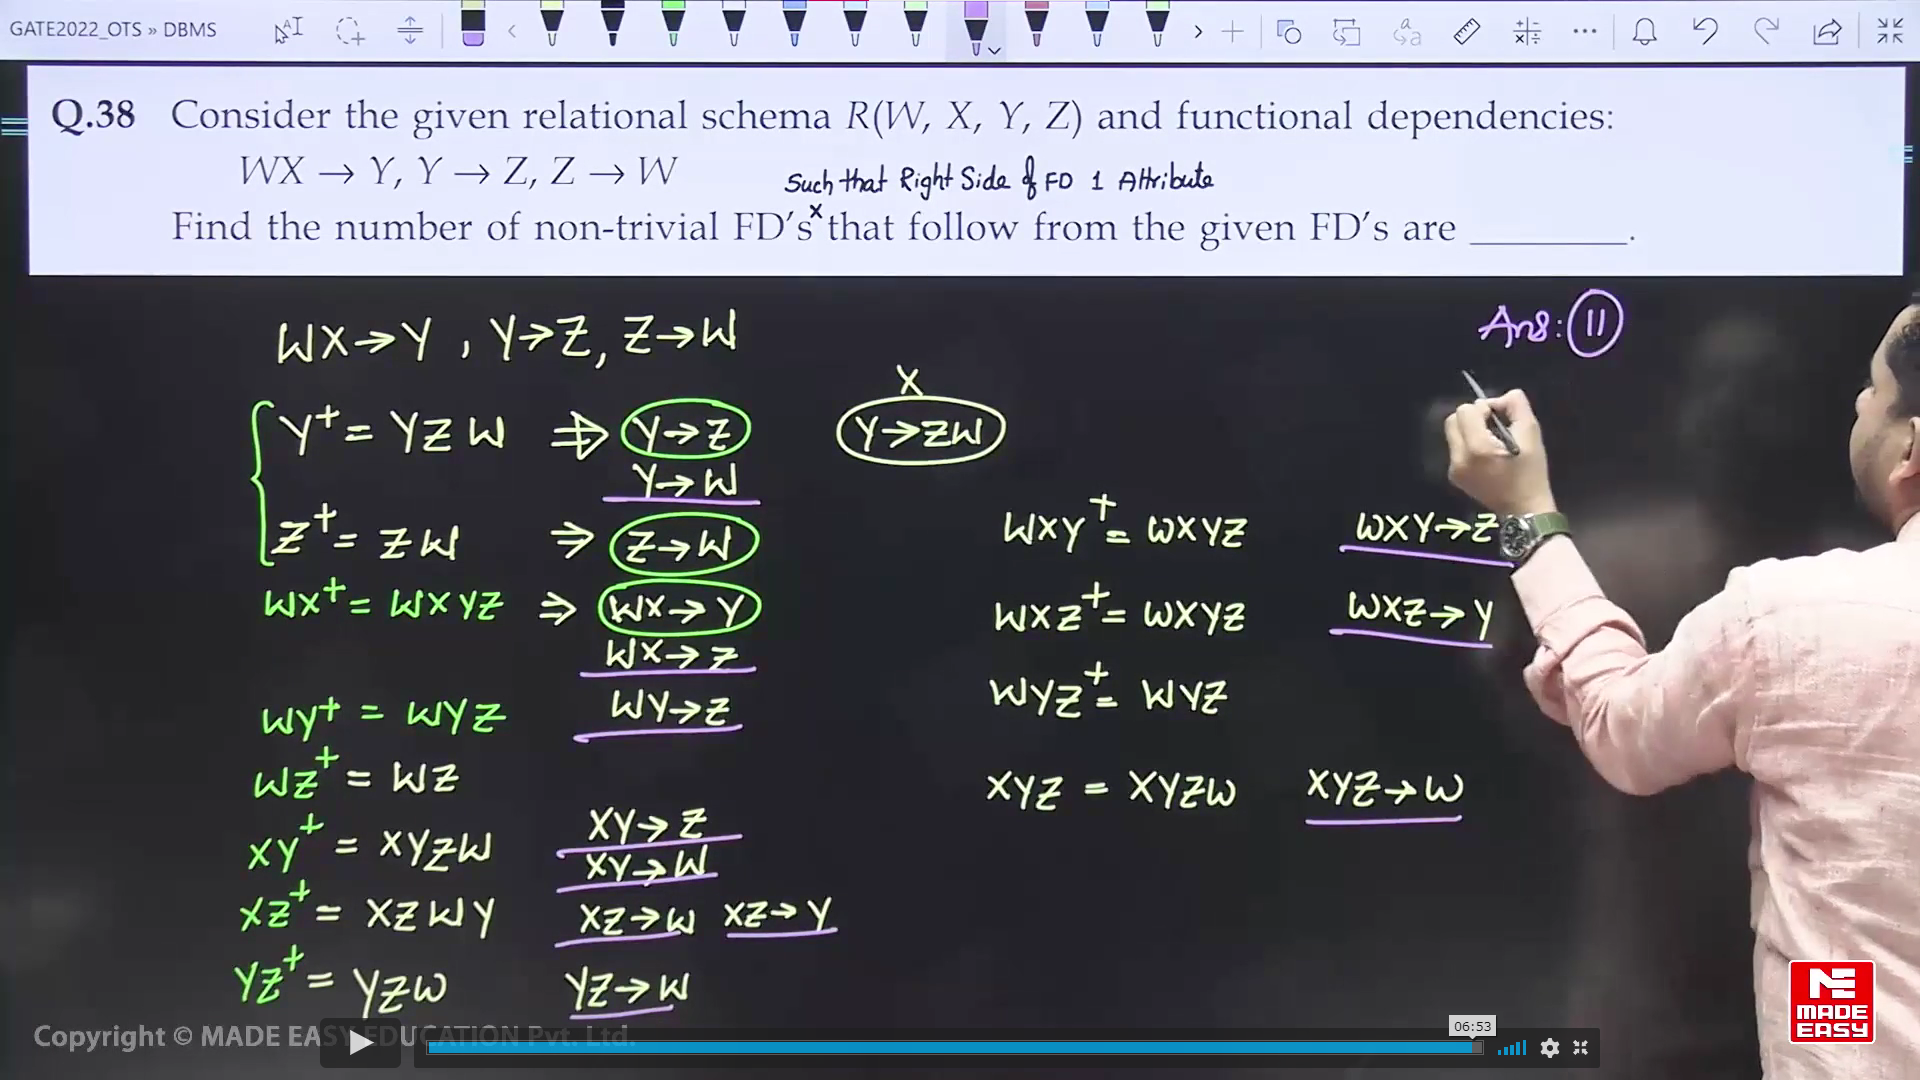 GATE2022_OTS » DBMS
Q.38 Consider the given relational schema R(W, X, Y, Z) and functional dependencies:
WX → Y, Y → Z, Z → W
Such that Right Side of FD 1 Attribute
Find the number of non-trivial FD's x that follow from the given FD's are ________.
WX→Y , Y→Z, Z→W
Ans: 11
X
Y⁺ = YZW ⇒ Y→Z
Y→ZW
Y→W
Z⁺ = ZW ⇒ Z→W
WX⁺ = WXYZ ⇒ WX→Y
WX→Z
WY⁺ = WYZ WY→Z
WZ⁺ = WZ
XY⁺ = XYZW XY→Z
XY→W
XZ⁺ = XZWY XZ→W XZ→Y
YZ⁺ = YZW YZ→W
WXY⁺ = WXYZ WXY→Z
WXZ⁺ = WXYZ WXZ→Y
WYZ⁺ = WYZ
XYZ = XYZW XYZ→W
Copyright © MADE EASY EDUCATION Pvt. Ltd.
06:53
ME
MADE
EASY